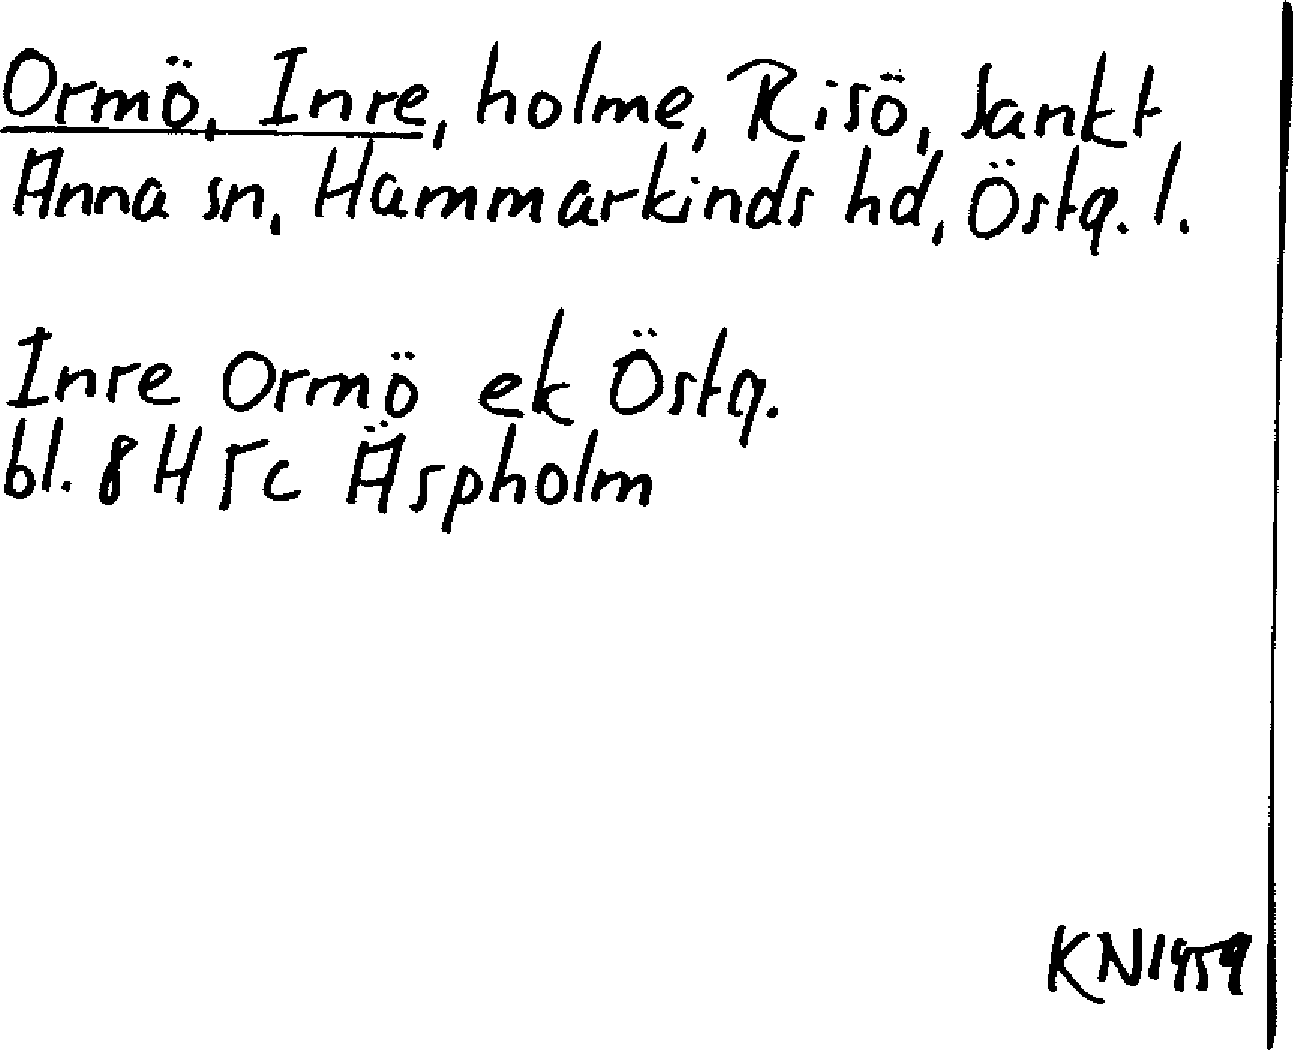 Ormö, Inre, holme, Risö, Sankt
Anna sn, Hammarkinds hd, Östg. l.
Inre Ormö ek Östg.
bl. 8 H 5c Äspholm
KN1959